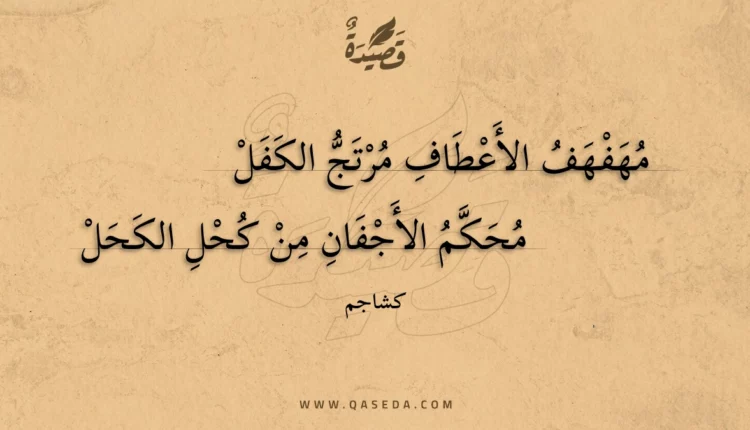 قَصِيْدَةٌ
مُهَفْهَفُ الأَعْطَافِ مُرْتَجُّ الكَفَلْ
مُحَكَّمُ الأَجْفَانِ مِنْ كُحْلِ الكَحَلْ
كشاجم
WWW.QASEDA.COM